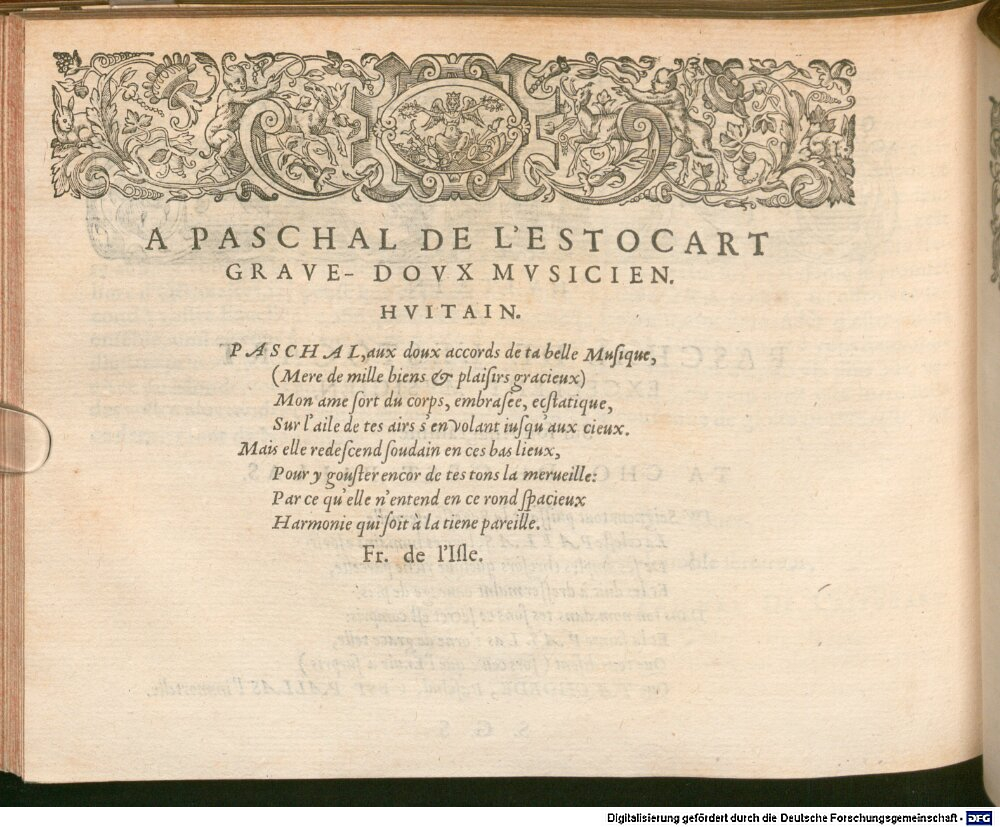 A PASCHAL DE L'ESTOCART
GRAVE- DOVX MVSICIEN.
HVITAIN.
PASCHAL, aux doux accords de ta belle Musique,
(Mere de mille biens & plaisirs gracieux)
Mon ame sort du corps, embrasee, ecstatique,
Sur l'aile de tes airs s'en volant iusqu'aux cieux.
Mais elle redescend soudain en ces bas lieux,
Pour y gouster encor de tes tons la merueille:
Par ce qu'elle n'entend en ce rond spacieux
Harmonie qui soit à la tiene pareille.
Fr. de l'Isle.
Digitalisierung gefördert durch die Deutsche Forschungsgemeinschaft - DFG